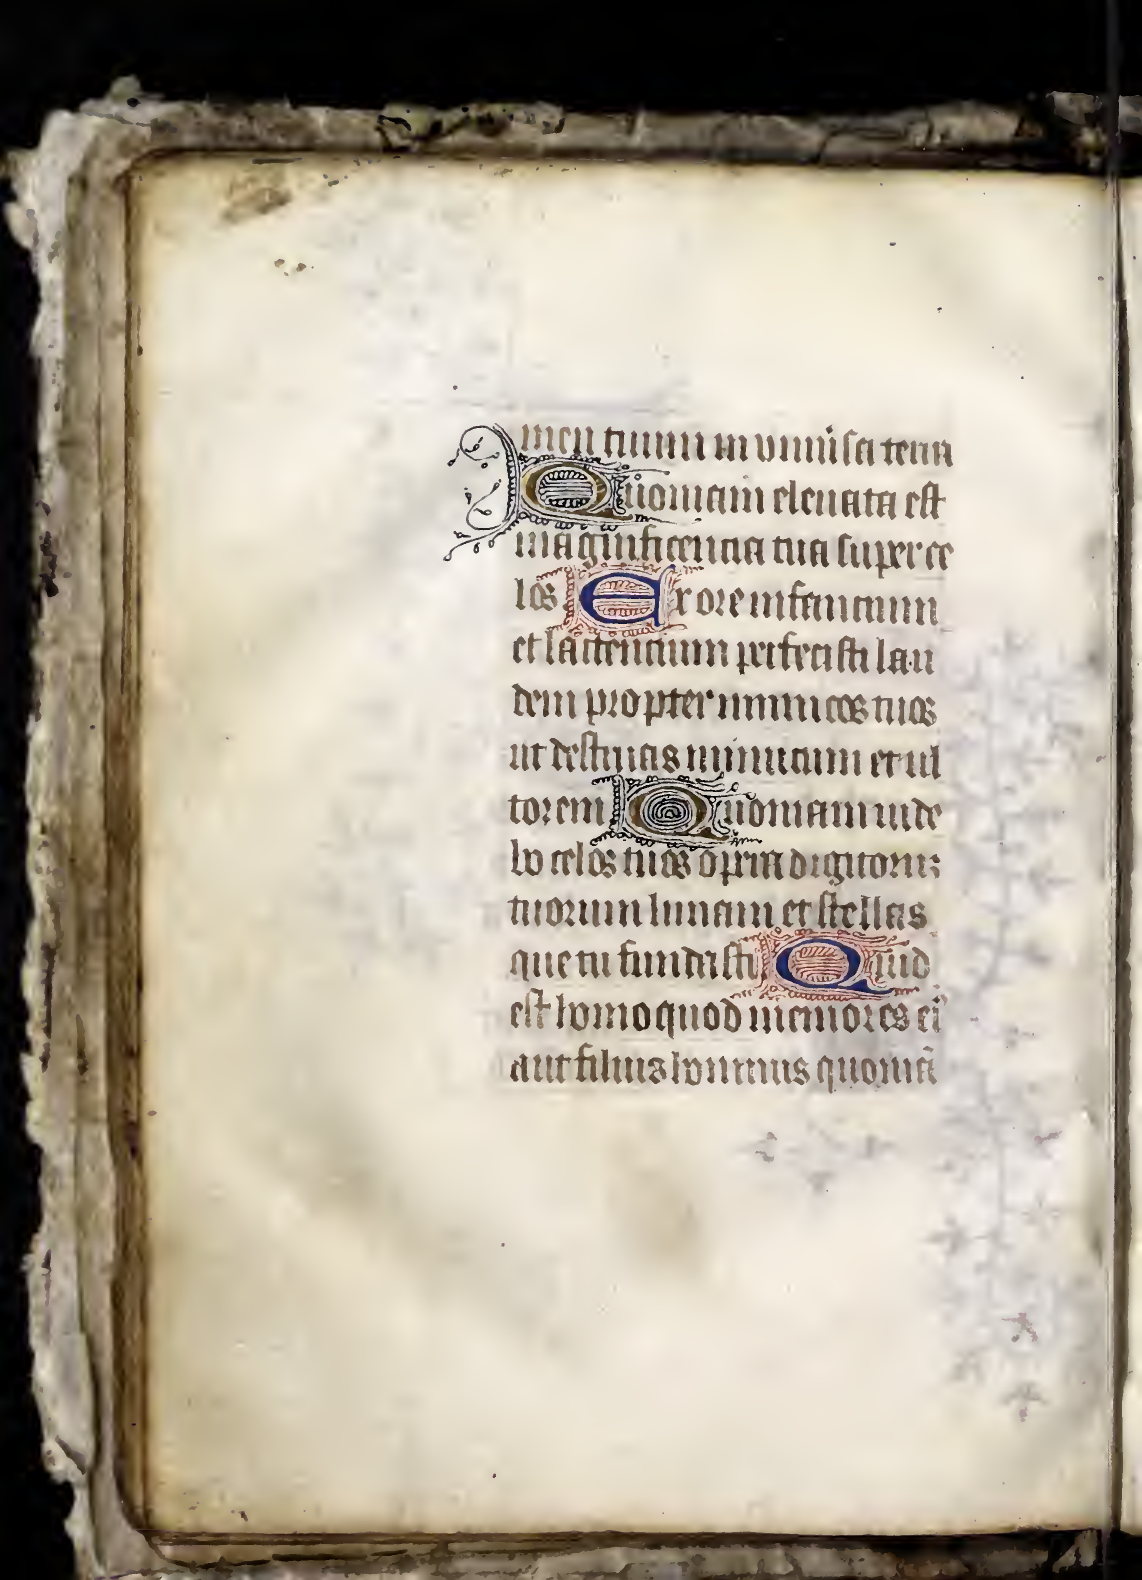 men tuum in uniu̇sa terra
Quoniam eleuata est
magnificencia tua super ce
los Ex ore infancium
et lactencium perfecisti lau
dem propter inimicos tuos
ut destruas inimicum et ul
torem Quoniam uide
bo celos tuos opera digitorū
tuorum lunam et stellas
que tu fundasti Quid
est homo quod memores eī
aut filius hominis quoniā